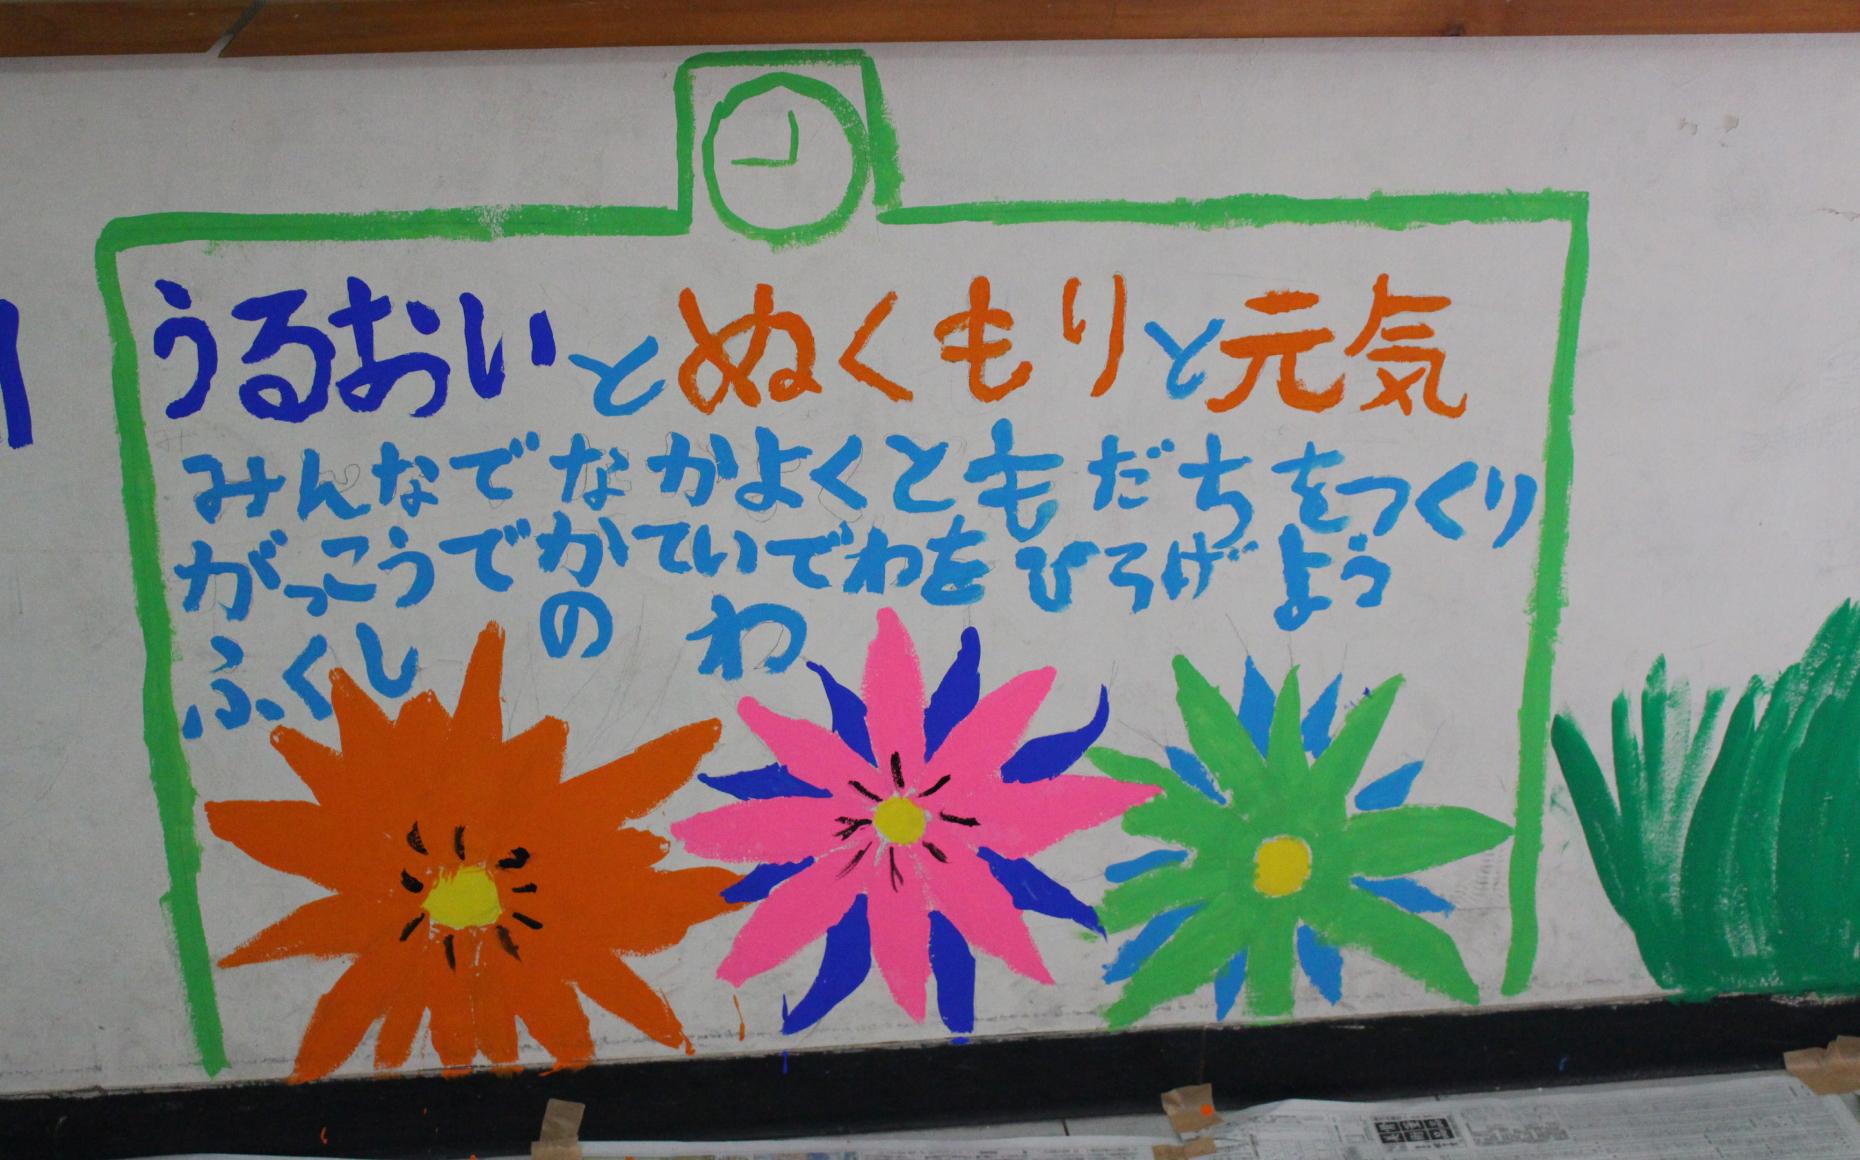 うるおいとぬくもりと元気
みんなでなかよくともだちをつくり
がっこうでかていでわをひろげよう
ふくしのわ